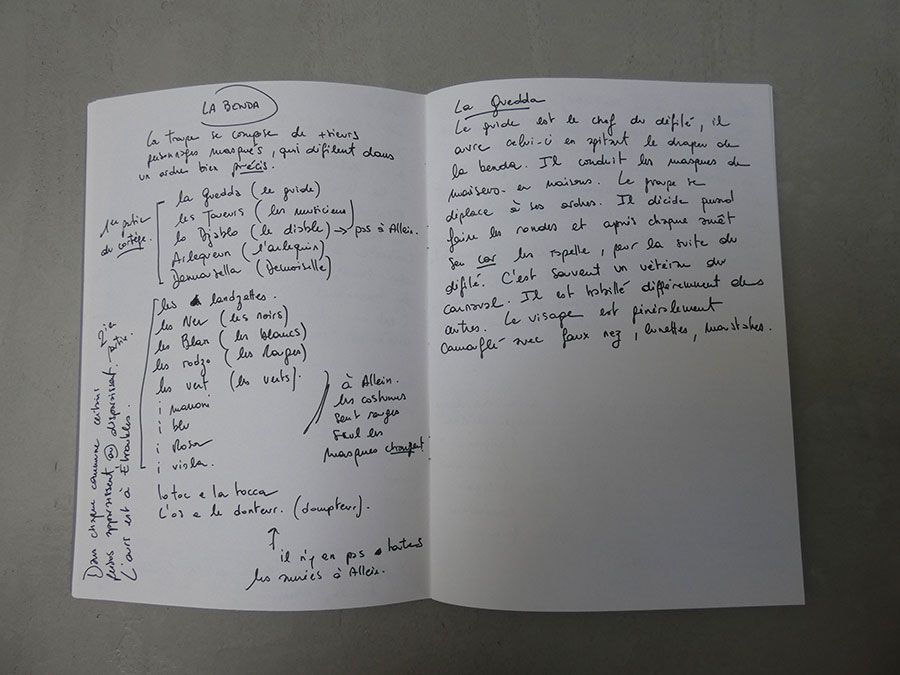 LA BENDA
La troupe se compose de +sieurs
personnages masqués, qui défilent dans
un ordre bien précis.
1ère partie
du cortège.
la Guedda (le guide)
les Toveurs (les musiciens)
lo Djablo (le diable) → pas à Allein.
Arlequeun (l'arlequin)
Demouaella (Demoiselle)
2ie partie
les landzettes.
les Ner (les noirs)
les Blan (les blancs)
les rodzo (les Rouges)
les vert (les verts).
i marroni
i blu
i Rosa
i viola.
à Allein.
les costumes
sont rouges
seul les
masques changent
lo toc e la tocca
L'os e le donteur. (dompteur).
↑
il n'y en pas toutes
les années à Allein.
Dans chaque commune certains
persos apparaissent ou disparaissent.
L'ours est à Etroubles.
La Guedda
Le guide est le chef du défilé, il
ouvre celui-ci en agitant le drapeau de
la benda. Il conduit les masques de
maisons en maisons. Le groupe se
déplace à ses ordres. Il décide quand
faire les rondes et après chaque arrêt
son cor les rapelle, pour la suite du
défilé. C'est souvent un vétéran du
carnaval. Il est habillé différemment des
autres. Le visage est généralement
camouflé avec faux nez, lunettes, moustaches.